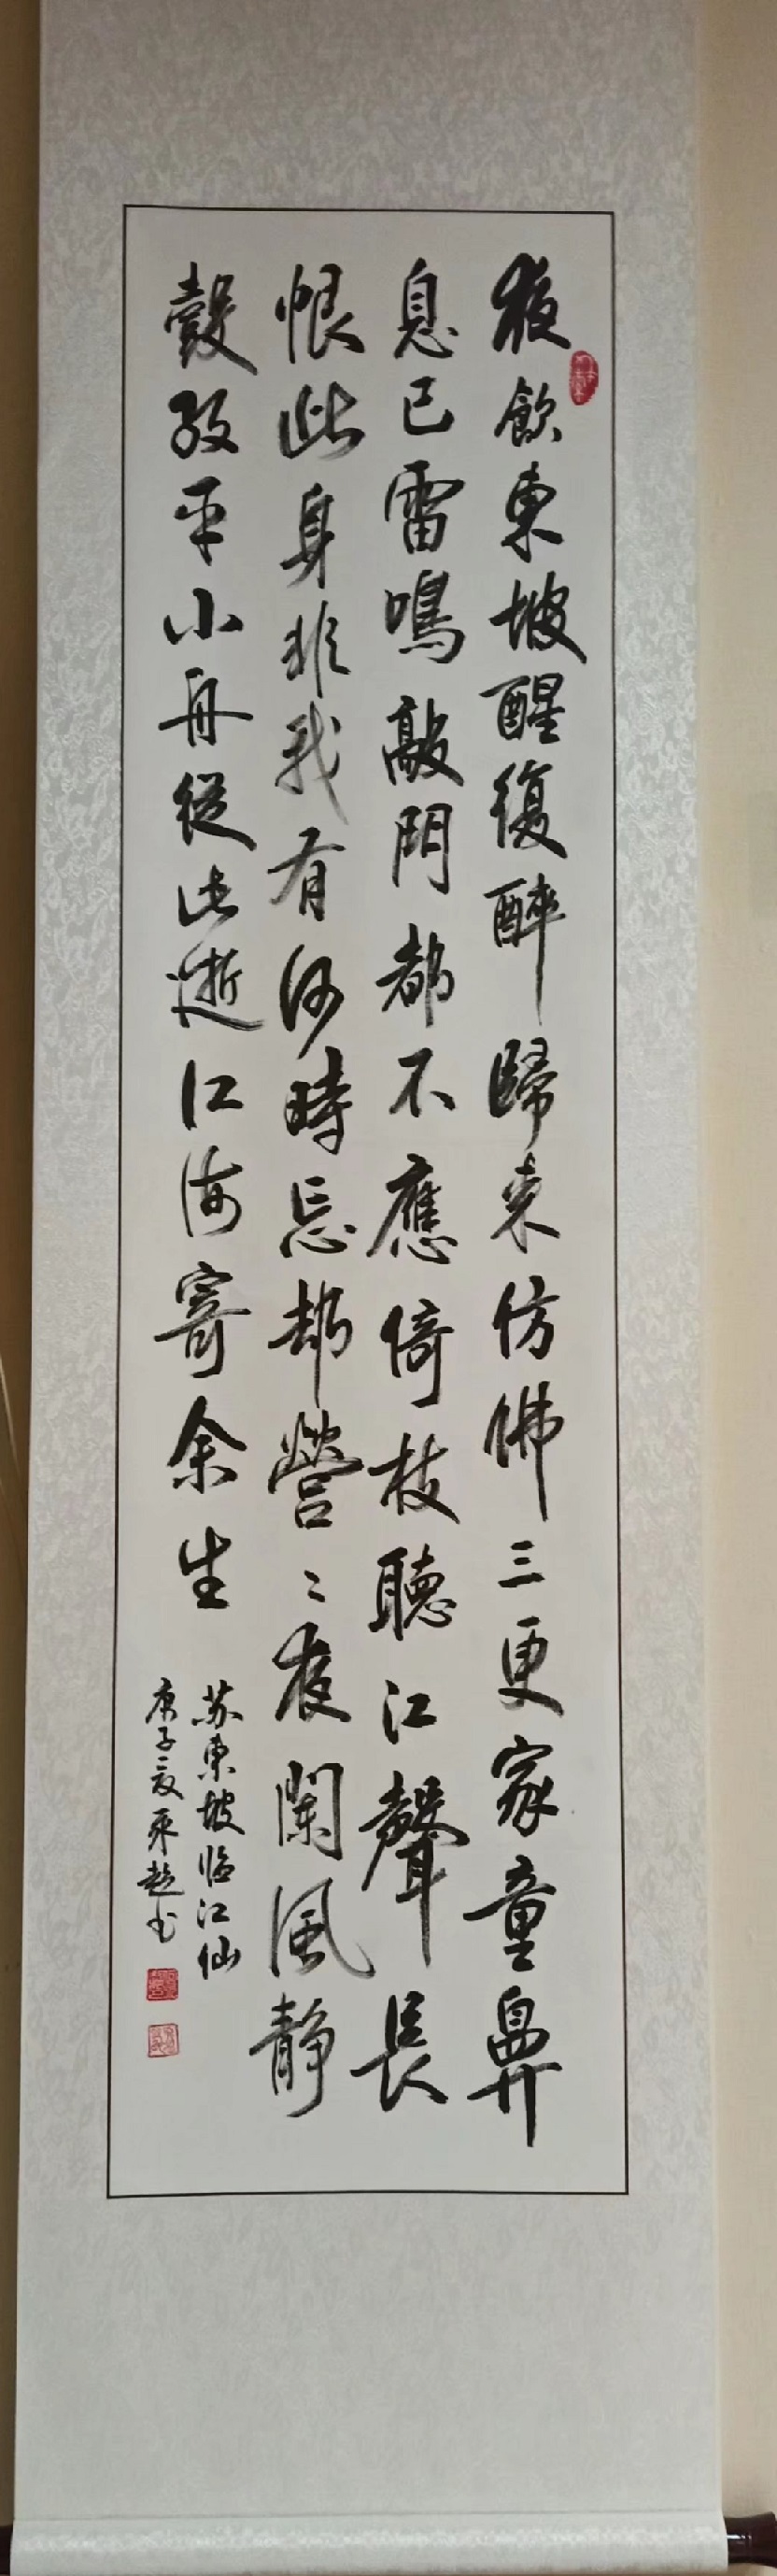 夜飲東坡醒復醉歸来仿佛三更家童鼻
息已雷鳴敲門都不應倚杖聽江聲長
恨此身非我有何時忘却營〻夜闌風静
縠紋平小舟從此逝江海寄余生
苏東坡临江仙
庚子夏平超书